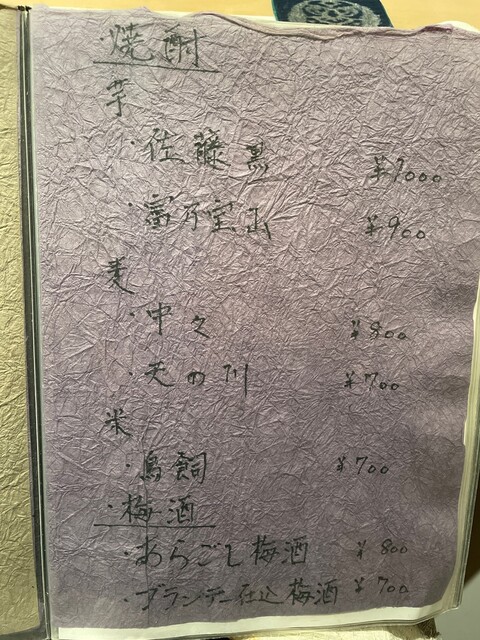 ・焼酎
芋
・佐藤 黒 ¥1000
・富乃宝山 ¥900
麦
・中々 ¥800
・天の川 ¥700
米
・鳥飼 ¥700
・梅酒
・あらごし梅酒 ¥800
・ブランデー仕込梅酒 ¥700